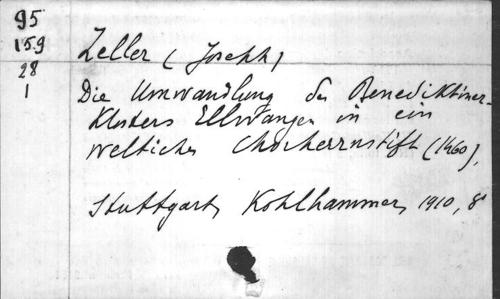 95
159
28
1
Zeller (Joseph)
Die Umwandlung des Benediktiner-
Klosters Ellwangen in ein
weltliches Chorherrnstift (1460),
Stuttgart, Kohlhammer, 1910, 8°